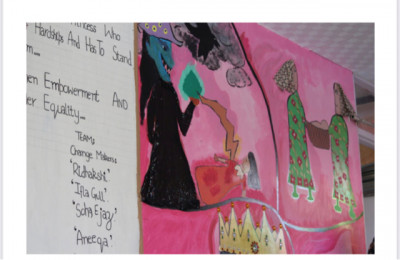 Princess Who
Hardships And Has To Stand
Empowerment AND
Equality...
TEAM:
Change Makers
'Ridhakshi'
'Ifla Gull'
'Soha Ejaz'
'Aneeqa'